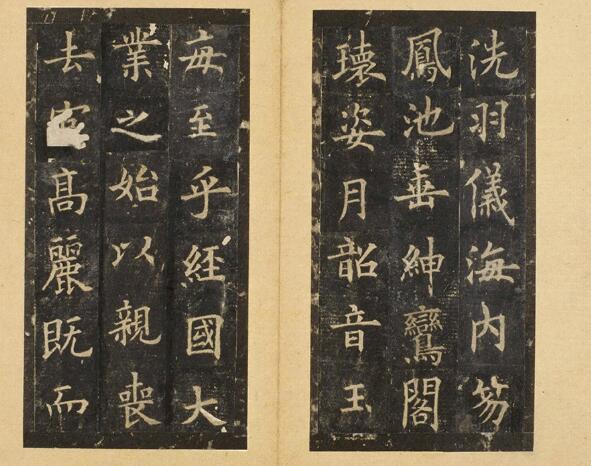 洗羽儀海内笏
鳳池垂紳鸞閣
瓌姿月韶音玉
每至乎經國大
業之始以親喪
去高麗既而